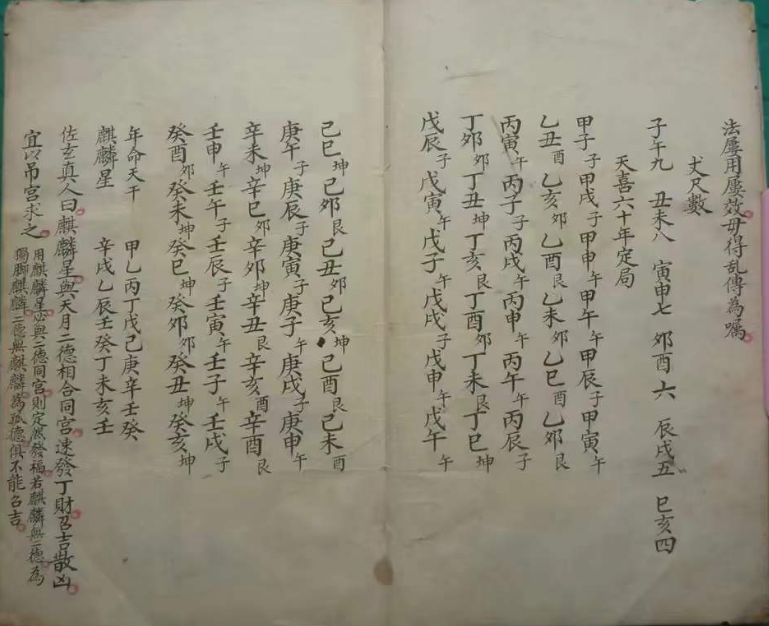 法屡用屡效毋得乱傳為嘱
丈尺數
子午九 丑未八 寅申七 夘酉六 辰戌五 巳亥四
天喜六十年定局
甲子子甲戌子甲申午甲午午甲辰子甲寅午
乙丑酉乙亥夘乙酉艮乙未夘乙巳酉乙夘艮
丙寅午丙子子丙戌午丙申午丙午午丙辰子
丁夘夘丁丑坤丁亥艮丁酉夘丁未艮丁巳坤
戊辰子戊寅午戊子午戊戌子戊申午戊午午
己巳坤己夘艮己丑夘己亥坤己酉艮己未酉
庚午子庚辰子庚寅子庚子午庚戌子庚申午
辛未坤辛巳夘辛夘坤辛丑艮辛亥酉辛酉艮
壬申午壬午子壬辰子壬寅午壬子午壬戌子
癸酉夘癸未坤癸巳坤癸夘夘癸丑坤癸亥坤
年命天干 甲乙丙丁戊己庚辛壬癸
麒麟星 辛戌乙辰壬癸丁未亥壬
佐玄真人曰麒麟星與天月二德相合同宮速發丁財召吉散凶
宜以吊宮求之
用麒麟星必與二德同宮則定然發福若麒麟無二德為
獨脚麒麟二德無麒麟為孤德俱不能召吉